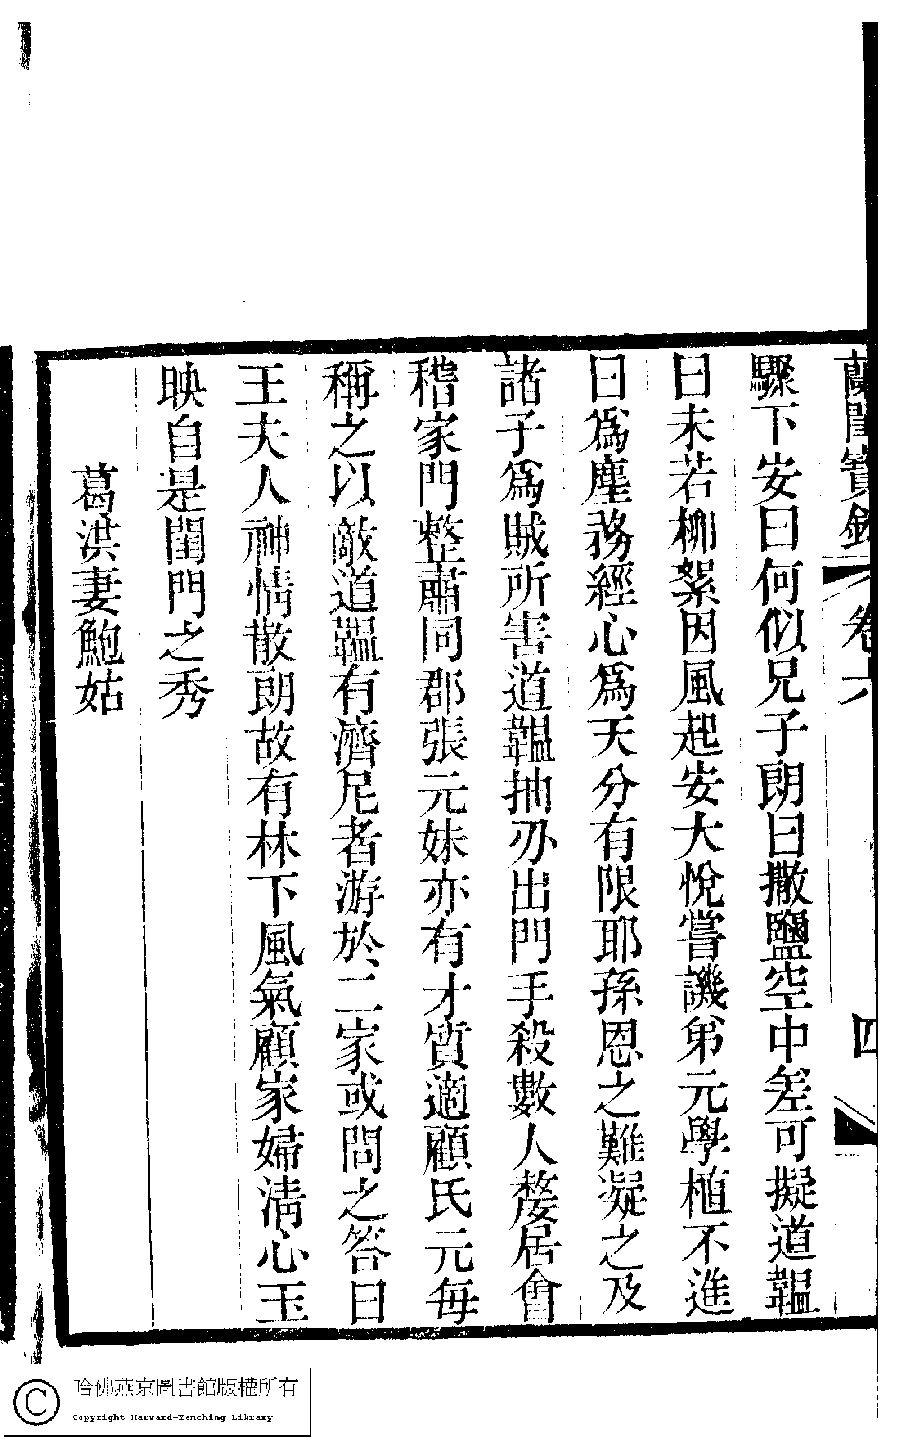 蘭閨寶錄 卷六 四
驟下安曰何似兄子朗曰撒鹽空中差可擬道韞
曰未若柳絮因風起安大悅嘗譏弟元學植不進
曰為塵務經心為天分有限耶孫恩之難凝之及
諸子為賊所害道韞抽刅出門手殺數人嫠居會
稽家門整肅同郡張元妹亦有才質適顧氏元每
稱之以敵道韞有濟尼者游於二家或問之答曰
王夫人神情散朗故有林下風氣顧家婦清心玉
映自是閨門之秀
葛洪妻鮑姑
哈佛燕京圖書館版權所有
Copyright Harvard-Yenching Library